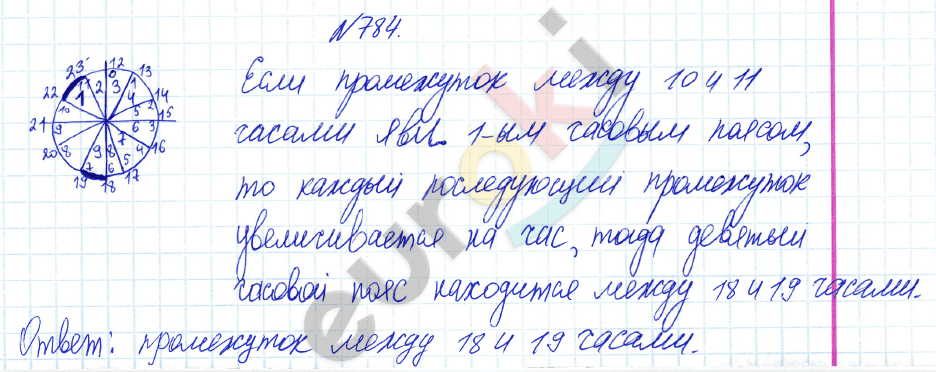 №784.
Если промежуток между 10 и 11
часами явл. 1-ым часовым поясом,
то каждый последующий промежуток
увеличивается на час, тогда девятый
часовой пояс находится между 18 и 19 часами.
Ответ: промежуток между 18 и 19 часами.
23 12 13
22 11 2 0 3 1 14
10 1 4 2 15
21 9 5 6 3
20 8 9 8 7 4 16
19 7 6 5 17
18
euroki